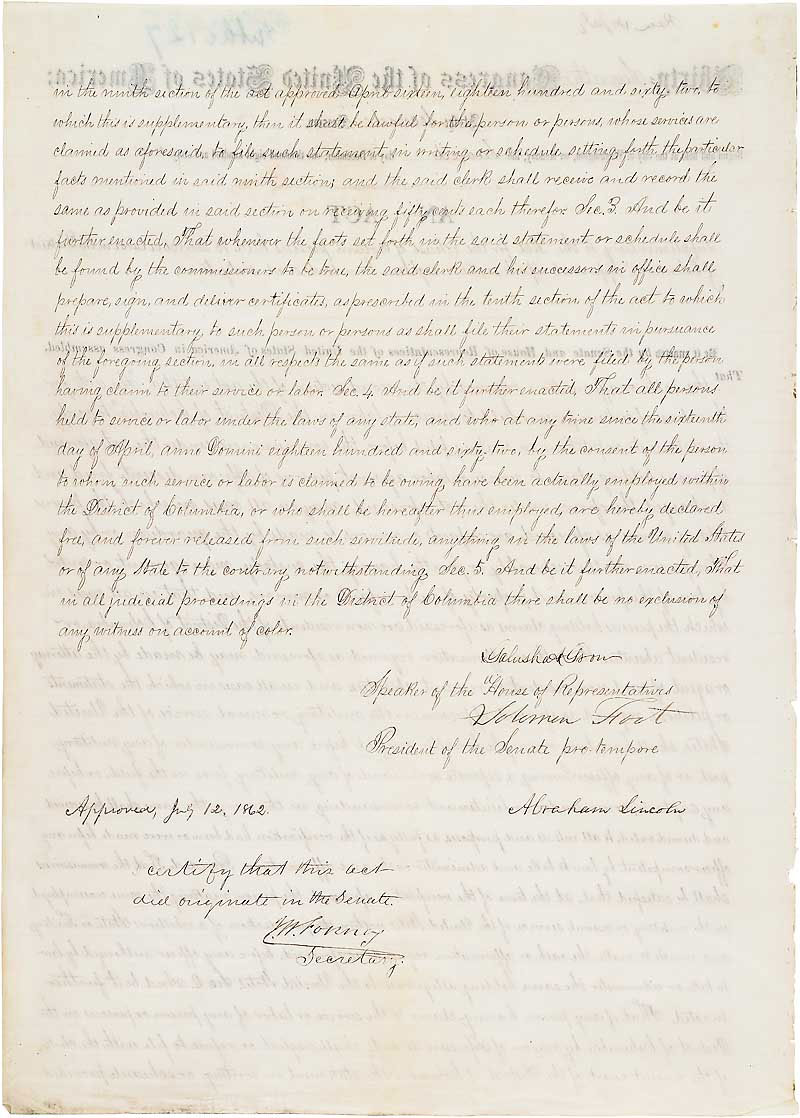 in the ninth section of the act approved April sixteen, eighteen hundred and sixty-two, to
which this is supplementary, then it shall be lawful for the person or persons, whose services are
claimed as aforesaid, to file such statement in writing or schedule setting forth the particular
facts mentioned in said ninth section; and the said clerk shall receive and record the
same as provided in said section on receiving fifty cents each therefor. Sec. 3. And be it
further enacted, That whenever the facts set forth in the said statement or schedule shall
be found by the commissioners to be true, the said clerk and his successors in office shall
prepare, sign, and deliver certificates, as prescribed in the tenth section of the act to which
this is supplementary, to such person or persons as shall file their statements in pursuance
of the foregoing section, in all respects the same as if such statements were filed by the person
having claim to their service or labor. Sec. 4. And be it further enacted, That all persons
held to service or labor under the laws of any state, and who at any time since the sixteenth
day of April, anno Domini eighteen hundred and sixty-two, by the consent of the person
to whom such service or labor is claimed to be owing, have been actually employed within
the District of Columbia, or who shall be hereafter thus employed, are hereby declared
free, and forever released from such servitude, anything in the laws of the United States
or of any State to the contrary notwithstanding. Sec. 5. And be it further enacted, That
in all judicial proceedings in the District of Columbia there shall be no exclusion of
any witness on account of color.
Galusha A Grow
Speaker of the House of Representatives
Solomon Foot
President of the Senate pro-tempore
Approved, July 12, 1862.
Abraham Lincoln
certify that this act
did originate in the Senate.
J.W. Forney
Secretary.